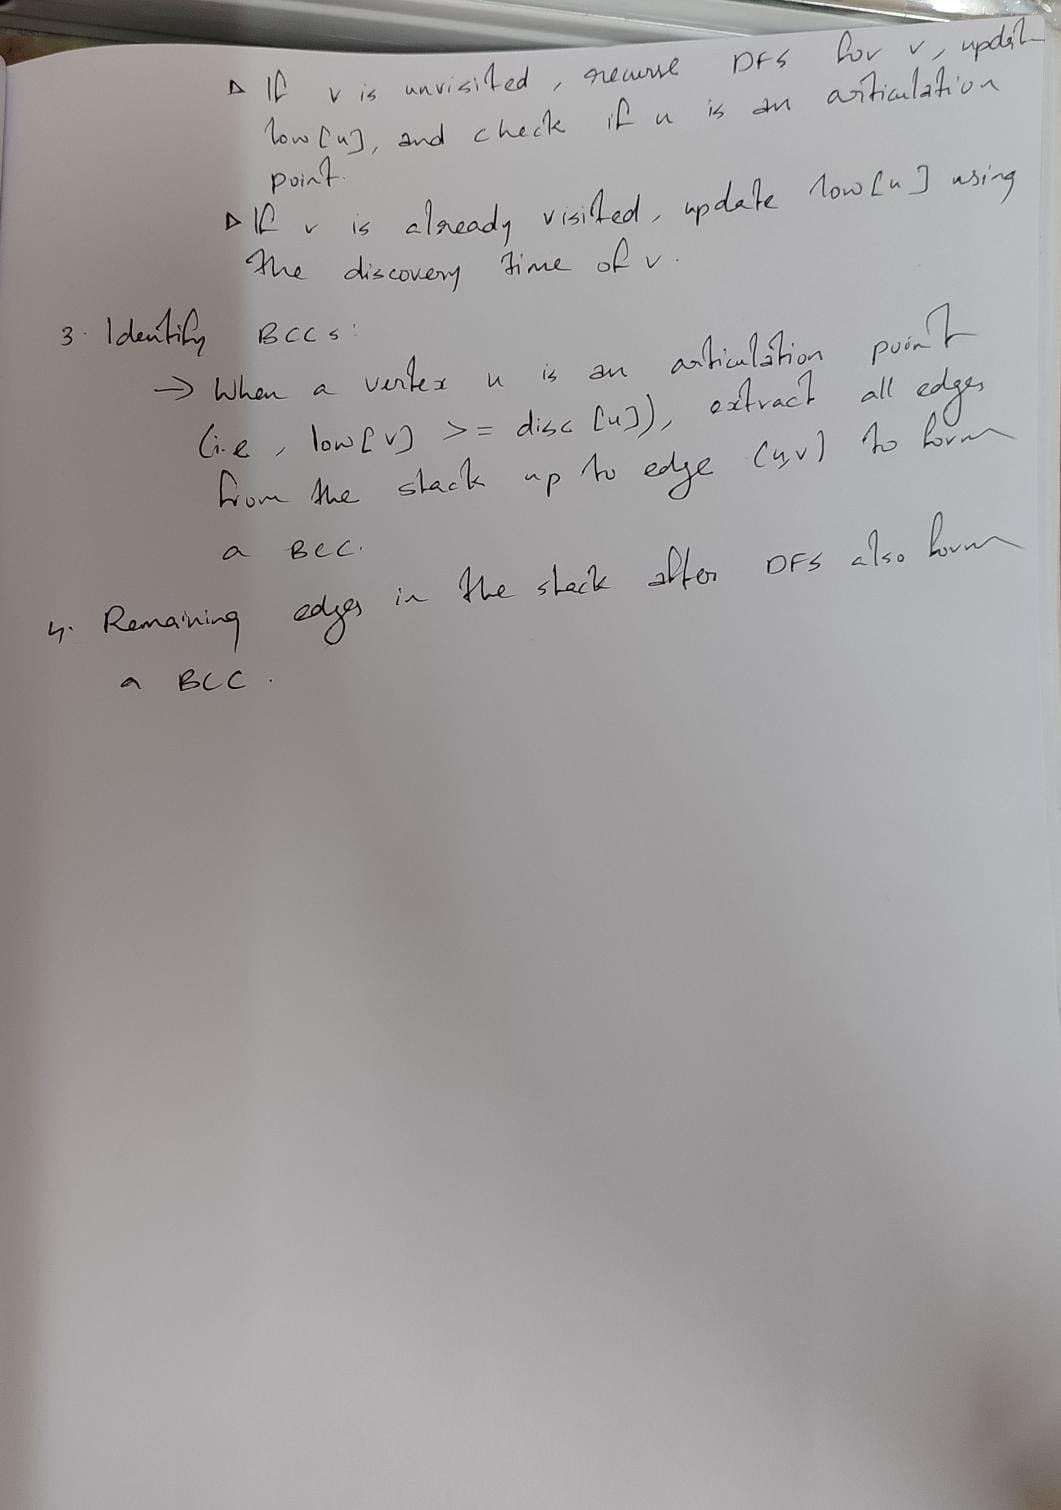 ▷ If v is unvisited, recurse DFS for v, update
low[u], and check if u is an articulation
point.
▷ If v is already visited, update low[u] using
the discovery time of v.
3. Identify BCCs:
→ When a vertex u is an articulation point
(i.e, low[v] >= disc[u]), extract all edges
from the stack up to edge (u,v) to form
a BCC.
4. Remaining edges in the stack after DFS also form
a BCC.